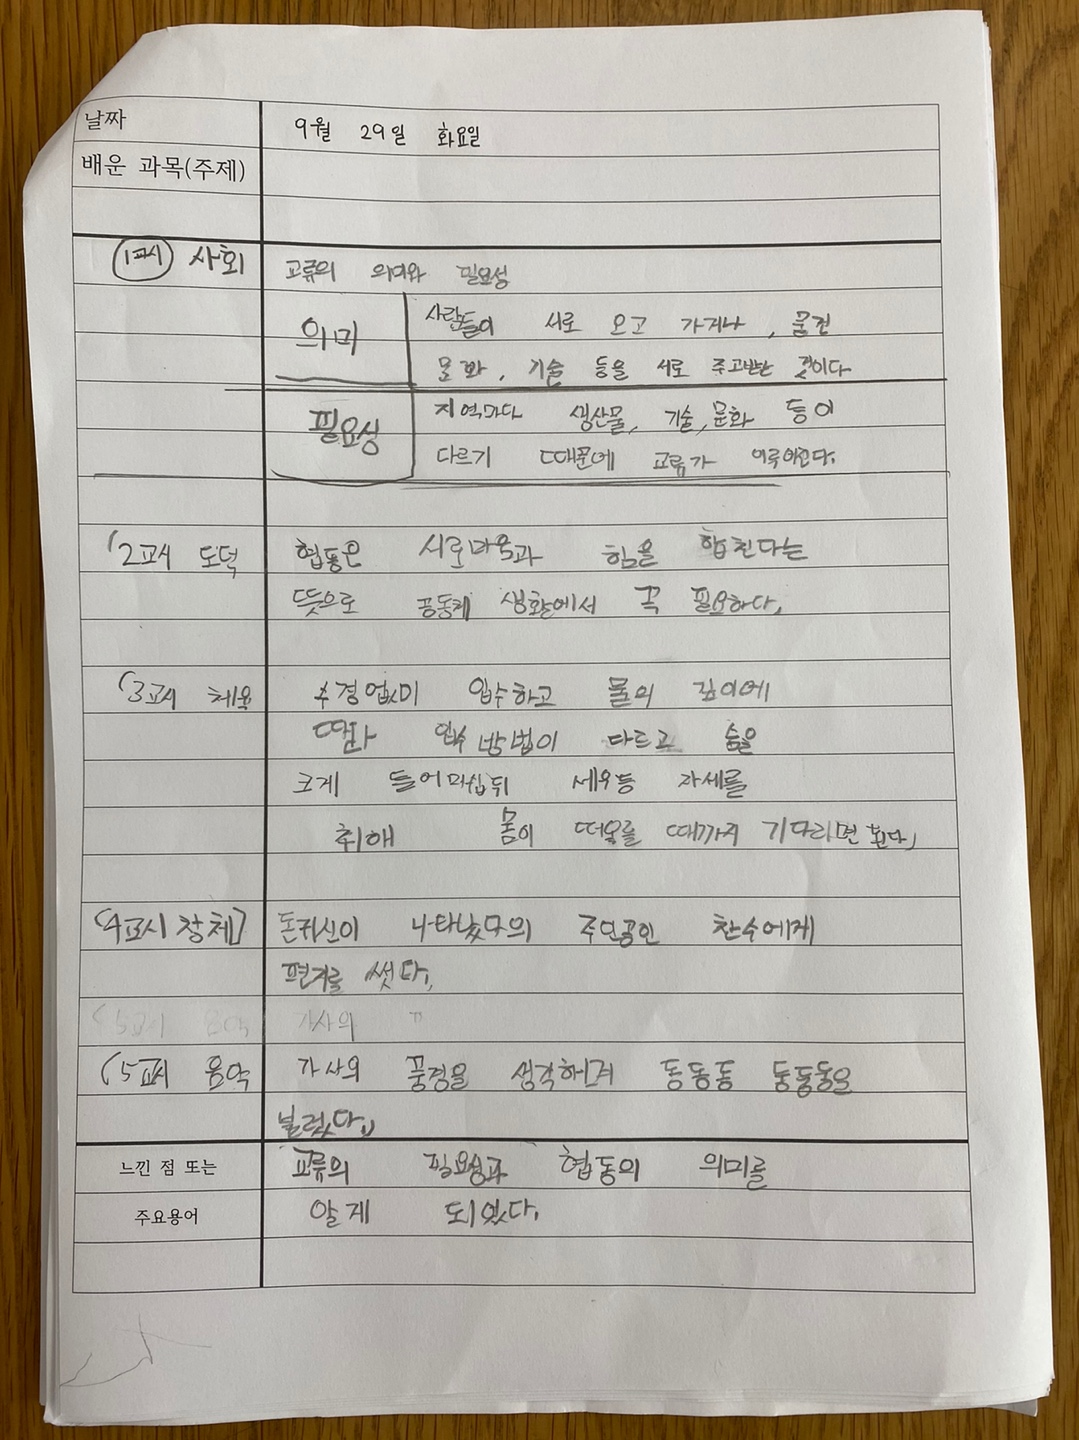 날짜 9월 29일 화요일
배운 과목(주제)
1교시 사회 교류의 의미와 필요성
의미 사람들이 서로 오고 가거나, 물건
문화, 기술 등을 서로 주고받는 것이다
필요성 지역마다 생산물, 기술, 문화 등이
다르기 때문에 교류가 이루어진다.
(2교시 도덕 협동은 서로마음과 힘을 합친다는
뜻으로 공동체 생활에서 꼭 필요하다.
(3교시 체육 수경없이 입수하고 물의 깊이에
따라 입수 방법이 다르고 숨을
크게 들어마쉽뒤 새우등 자세를
취해 몸이 떠오를 때까지 기다리면 된다.
(4교시 창체] 돈귀신이 나타났다의 주인공인 찬수에게
편지를 썻다.
(5교시 음악 가사의
(5교시 음악 가사의 풍경을 생각하며 동동동 동동동을
불렀다.
느낀 점 또는 교류의 필요성과 협동의 의미를
주요용어 알게 되었다.